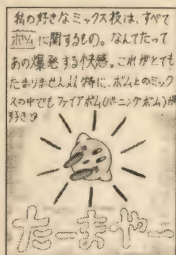 私の好きなミックス技は、すべて
ボムに関するもの。なんてたって
あの爆発する快感。これがとても
たまりません!!特に、ボムとのミック
スの中でもファイアボム(バーニングボム)が
好きです
たーまやー